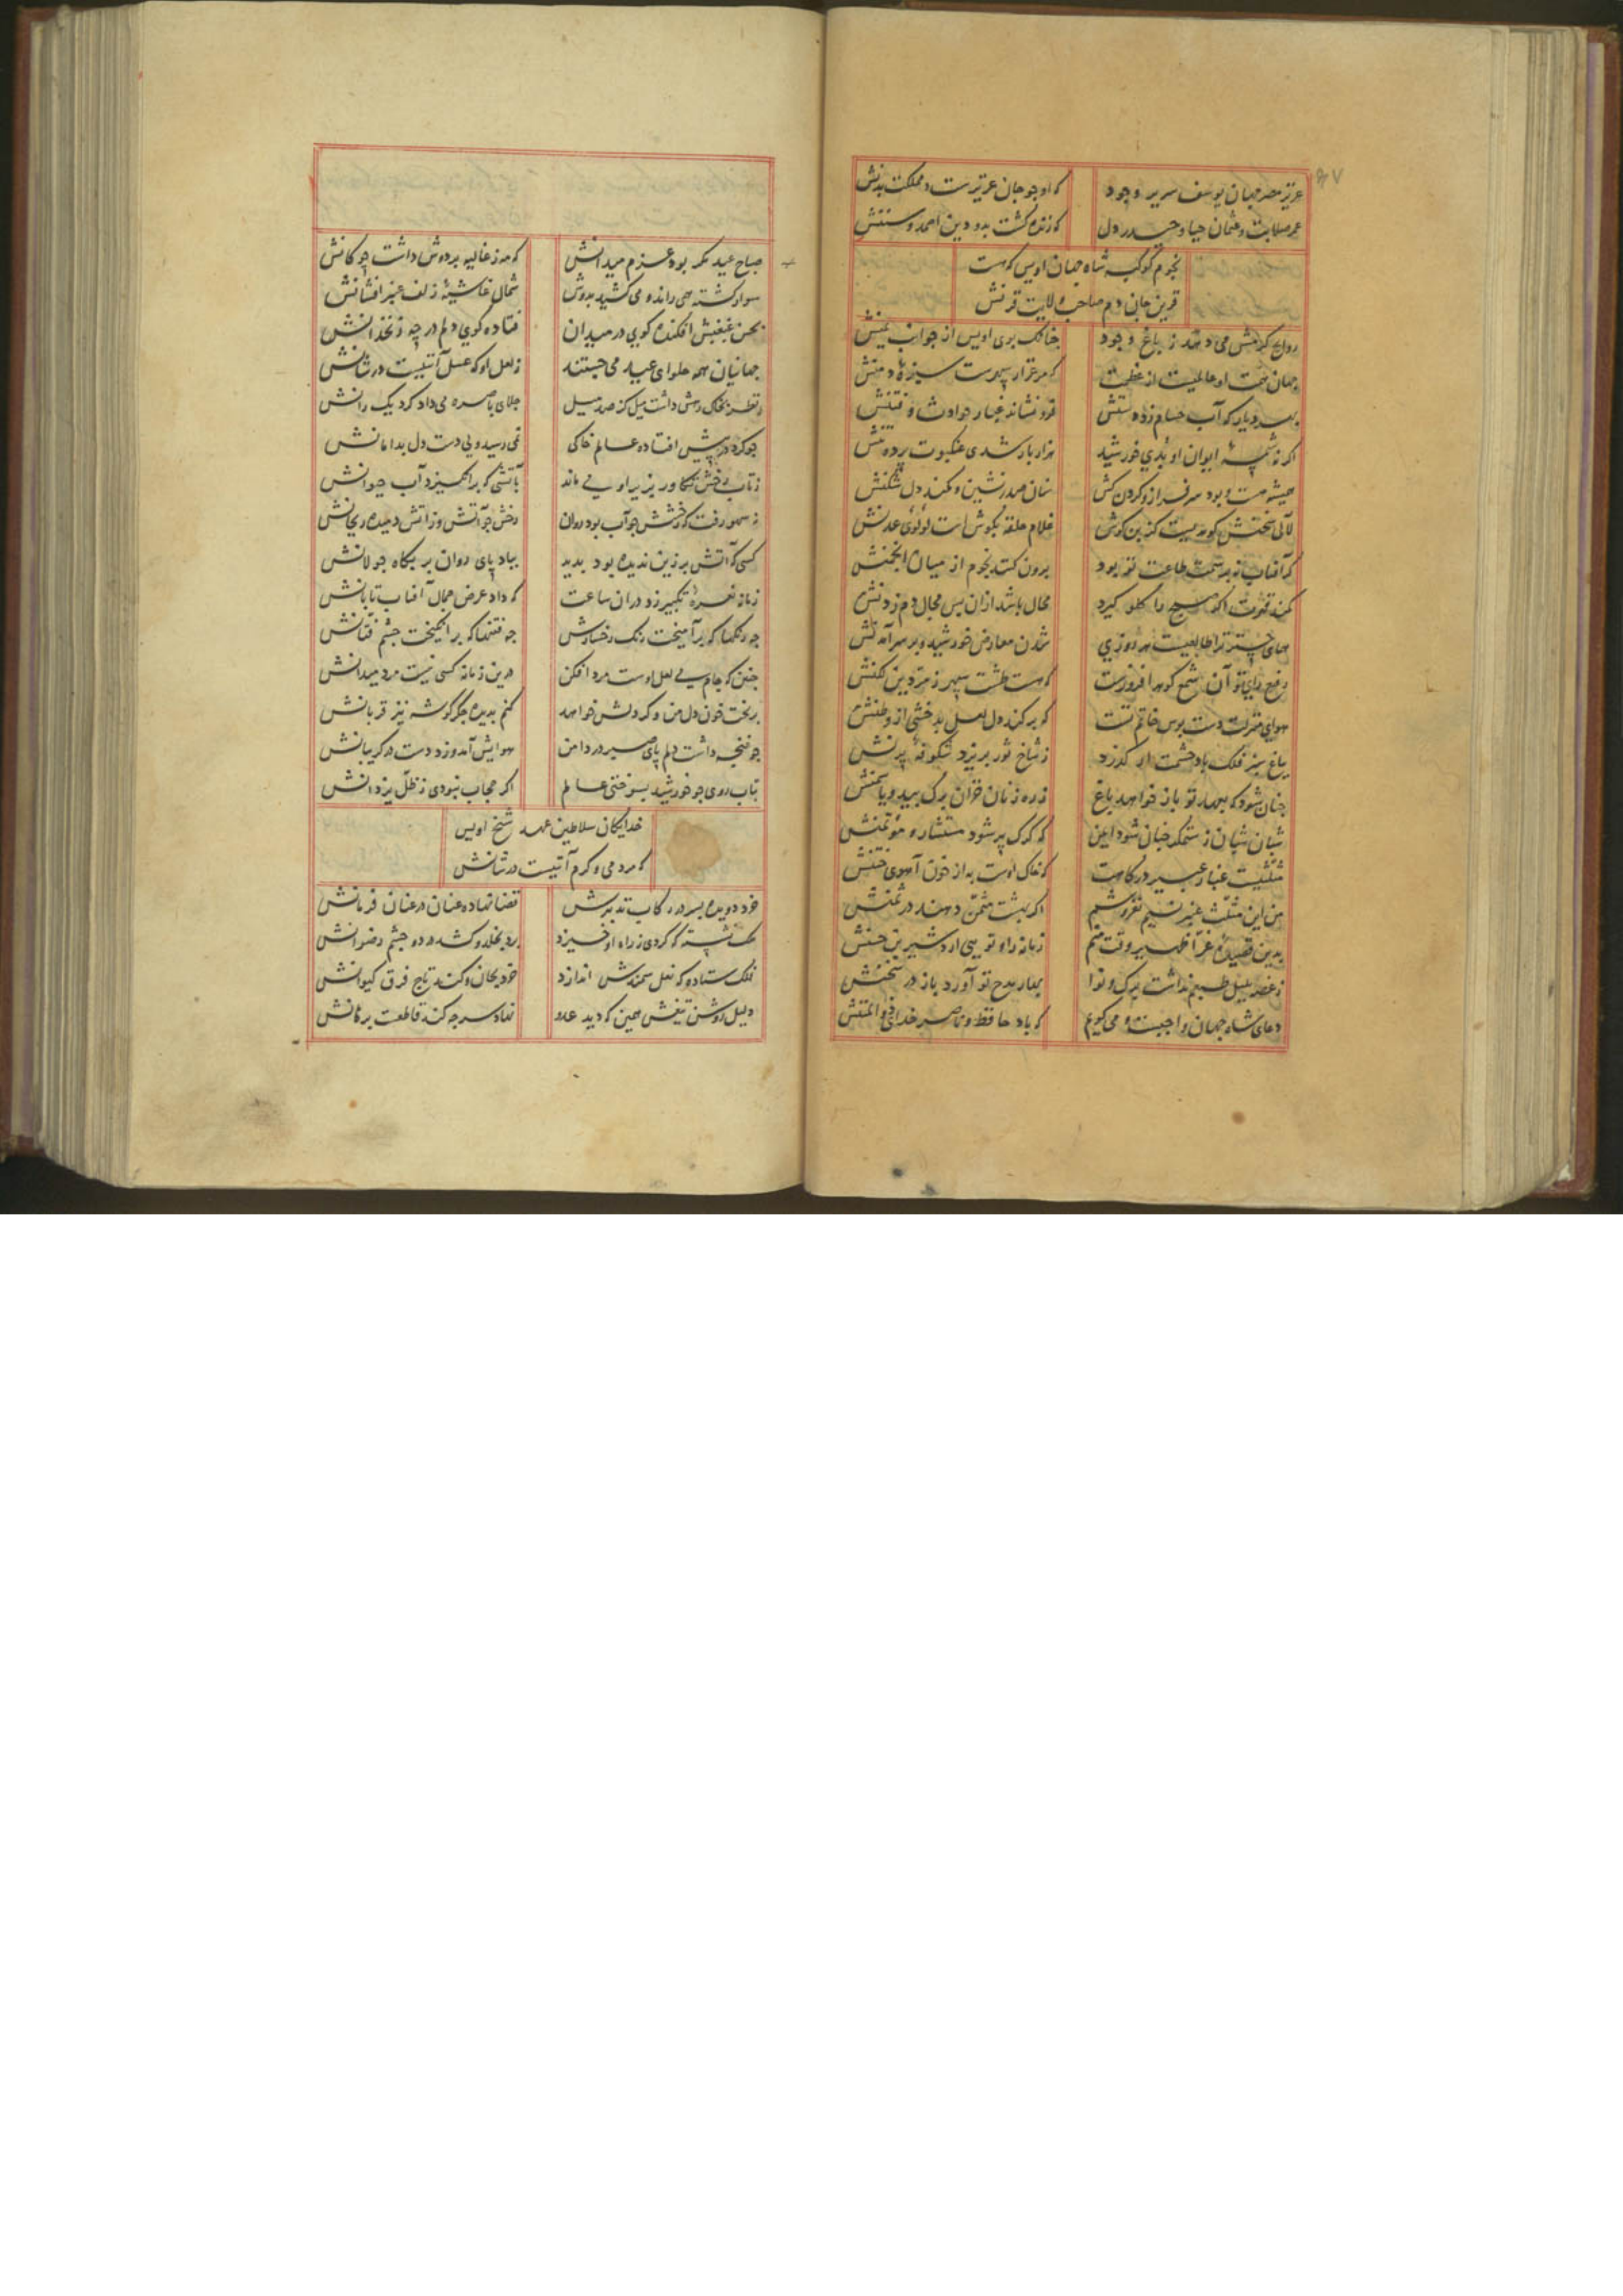 عزیز مصر جهان یوسف سریر وجود
که او جو جان عزیزست و مملکت بدنش
عمر صلابت و عثمان حیا و حیدر دل
که زنده کشت بدو دین احمد و سننش
نجوم کوکبه شاه جهان اویس که هست
قرین جانی دم صاحب ولایت قرنش
روایح کرمش می دمد ز باغ وجود
جنانک بوی اویس از جوانب یمنش
جهان همت او عالمیست از عظمت
که مرغزار سپهرست سبزه دمنش
بهر دیار که آب حسام زد دستش
فرو نشاند غبار حوادث و فتنش
اکر نه شمسه ایوان او بدی خورشید
هزار بار شدی عنکبوت پرده تنش
همیشه هست و بود سرفراز و کردن کش
سنان صدرنشین و کمند دل شکنش
لآلی سخنش کوهریست کز بن کوش
غلام حلقه بکوش است لؤلؤی عدنش
کر آفتاب نه بر سمت طاعت تو بود
برون کنند نجوم از میان انجمنش
کمند قهرت اکر صبح را کلو کیرد
محال باشد از ان پس مجال دم زدنش
همای چتر ترا طالعیست هر روزی
شدن معارض خورشید و بر سر آمدنش
رفیع رای تو آن شمع کوهر افروزست
که هست طشت سپهر زمردین لکنش
هوای منزلت دست بوس خاتم تست
که بر کند دل لعل بدخشی از وطنش
بباغ سبز فلک باد خشمت ار کذرد
ز شاخ ثور بریزد شکوفه پرنش
جنان شود که بهار تو باز خواهد باغ
ز ره زنان خزان برک بید و یاسمنش
شبان شبان ز ستمکر جنان شود ایمن
که کرک پیر شود مستشار و مؤتمنش
مثلثیست غبار و عبیر درکاهت
که خاک اوست به از خون آهوی ختنش
من این مثلث عنبر نسیم نفروشم
اکر بهشت مثمن دهند در ثمنش
بدین قصیده غرا ظهیر وقت منم
زمانه را و تویی اردشیر بن حسنش
ز غصه بلبل طبعم نداشت برک و نوا
بهار مدح تو آورد باز در سخنش
دعای شاه جهان واجبست و می کویم
که باد حافظ و ناصر خدای ذو المننش
صباح عید مکر بود عزم میدانش
که مه ز غالیه بر دوش داشت جوکانش
سوار کشته همی راند و می کشید بدوش
شمال غاشیه زلف عنبر افشانش
بحسن غبغبش افکنده کوی در میدان
فتاده کوی دلم در چه زنخدانش
جهانیان همه حلوای عید می جستند
ز لعل او که عسل آیتیست در شانش
نظر بخاک رهش داشت میل کز صد میل
جلای باصره می داد کرد یکرانش
جو کرد در پیش افتاده عالم خاکی
نمی رسید ولی دست دل بدامانش
ز تاب رخش تکاور بزیر او می ماند
بآتشی که بر انکیزد آب حیوانش
رخش جو آتش وز آتش دمیده ریحانش
کسی که آتش بر زین ندیده بود بدید
بباد پای روان بر بکاه جولانش
زمانه نعره تکبیر زد در ان ساعت
که داد عرض جمال آفتاب تابانش
جه رنکها که بر آمیخت رنک رخسارش
جه فتنها که بر انکیخت جشم فتانش
جنین که جام می لعل اوست مرد افکن
درین زمانه کسی نیست مرد میدانش
بریخت خون دل من و کر دلش خواهد
کنم بدیده جکر کوشه نیز قربانش
جو غنجه داشت دلم پای صبر در دامن
هوایش آمد و زد دست در کریبانش
بتاب روی جو خورشید بسوختی عالم
اکر حجاب نبودی ز ظل یزدانش
خدایکان سلاطین عهد شیخ اویس
که مردمی و کرم آیتیست در شانش
خرد دویده بسر در رکاب تدبیرش
قضا نهاده عنان در عنان فرمانش
فلک ستاده که نعل سمندش اندازد
خرد بجان و کند تاج فرق کیوانش
دلیل روشن تیغش همین که دید عدو
نهاد سر جه کند قاطعست برهانش